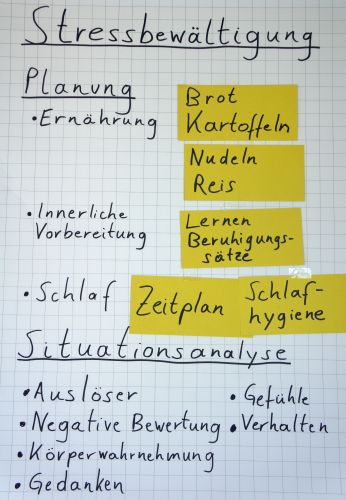 Stressbewältigung
Planung
• Ernährung
Brot
Kartoffeln
Nudeln
Reis
• Innerliche
Vorbereitung
Lernen
Beruhigungs-
sätze
• Schlaf
Zeitplan
Schlaf-
hygiene
Situationsanalyse
• Auslöser
• Negative Bewertung
• Körperwahrnehmung
• Gedanken
• Gefühle
• Verhalten